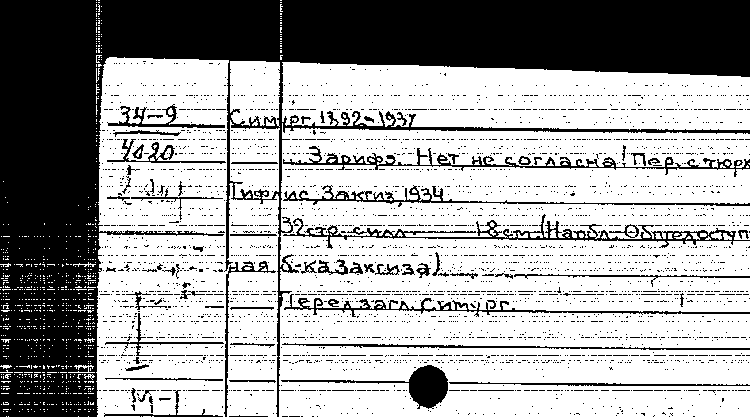 34-9 Симург, 1892-1937
4020 ... Зарифэ. Нет, не согласна! Пер. с тюрк
Тифлис, Закгиз, 1934.
32 стр., с илл. 18 см (Нар. бл. Общедоступ
ная б-ка Закгиза)
Перед загл. Симург.
М-1